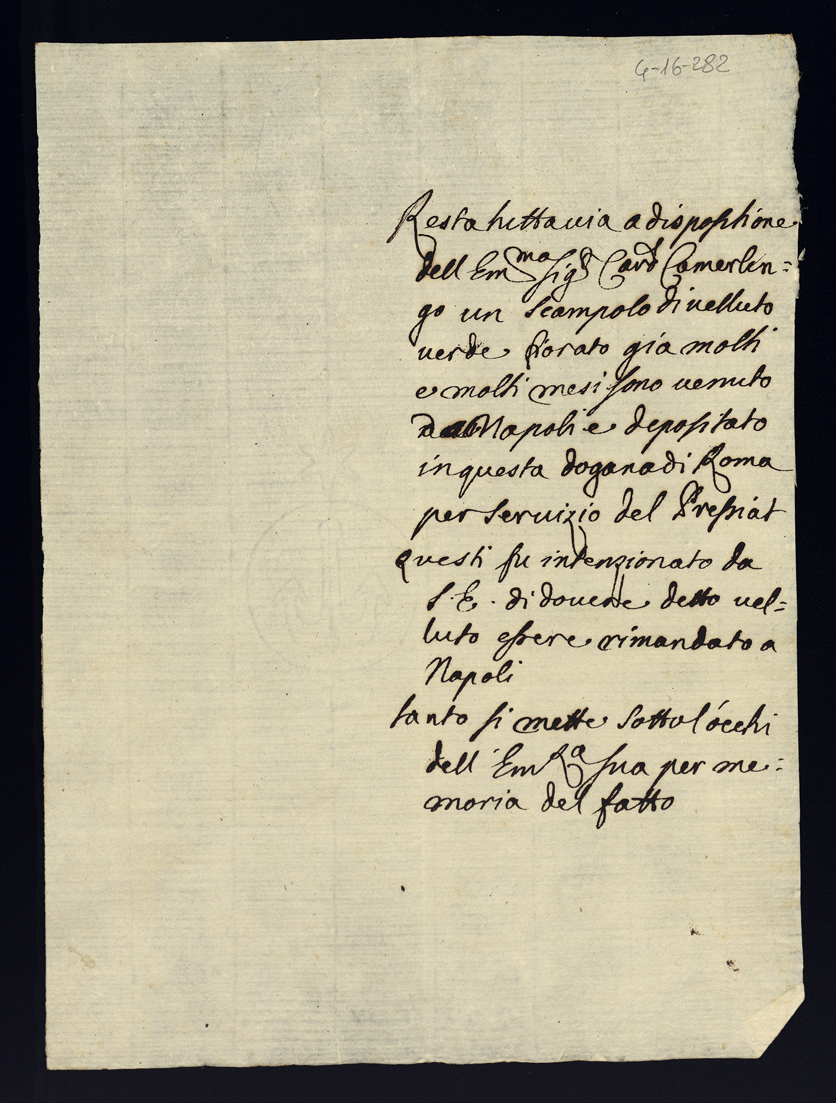 4-16-282
Resta tuttavia a disposizione
dell Em.ma Sig.r Card Camerlen=
go un scampolo di velluto
verde fiorato già molti
e molti mesi sono venuto
da Napoli e depositato
in questa dogana di Roma
per servizio del
questi fu intenzionato da
S. E. di dovere detto vel=
luto essere rimandato a
Napoli
tanto si mette sotto l'occhi
dell' Em.Ra sua per me=
moria del fatto